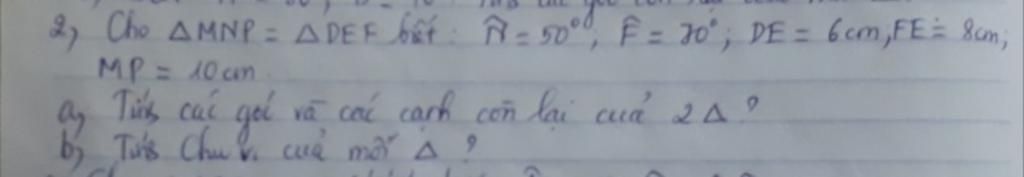 2, Cho △MNP = △DEF biết: N̂ = 50°; F̂ = 70°; DE = 6cm, FE = 8cm;
MP = 10cm.
a, Tính các góc và các cạnh còn lại của 2 △ ?
b, Tính Chu vi của mỗi △ ?